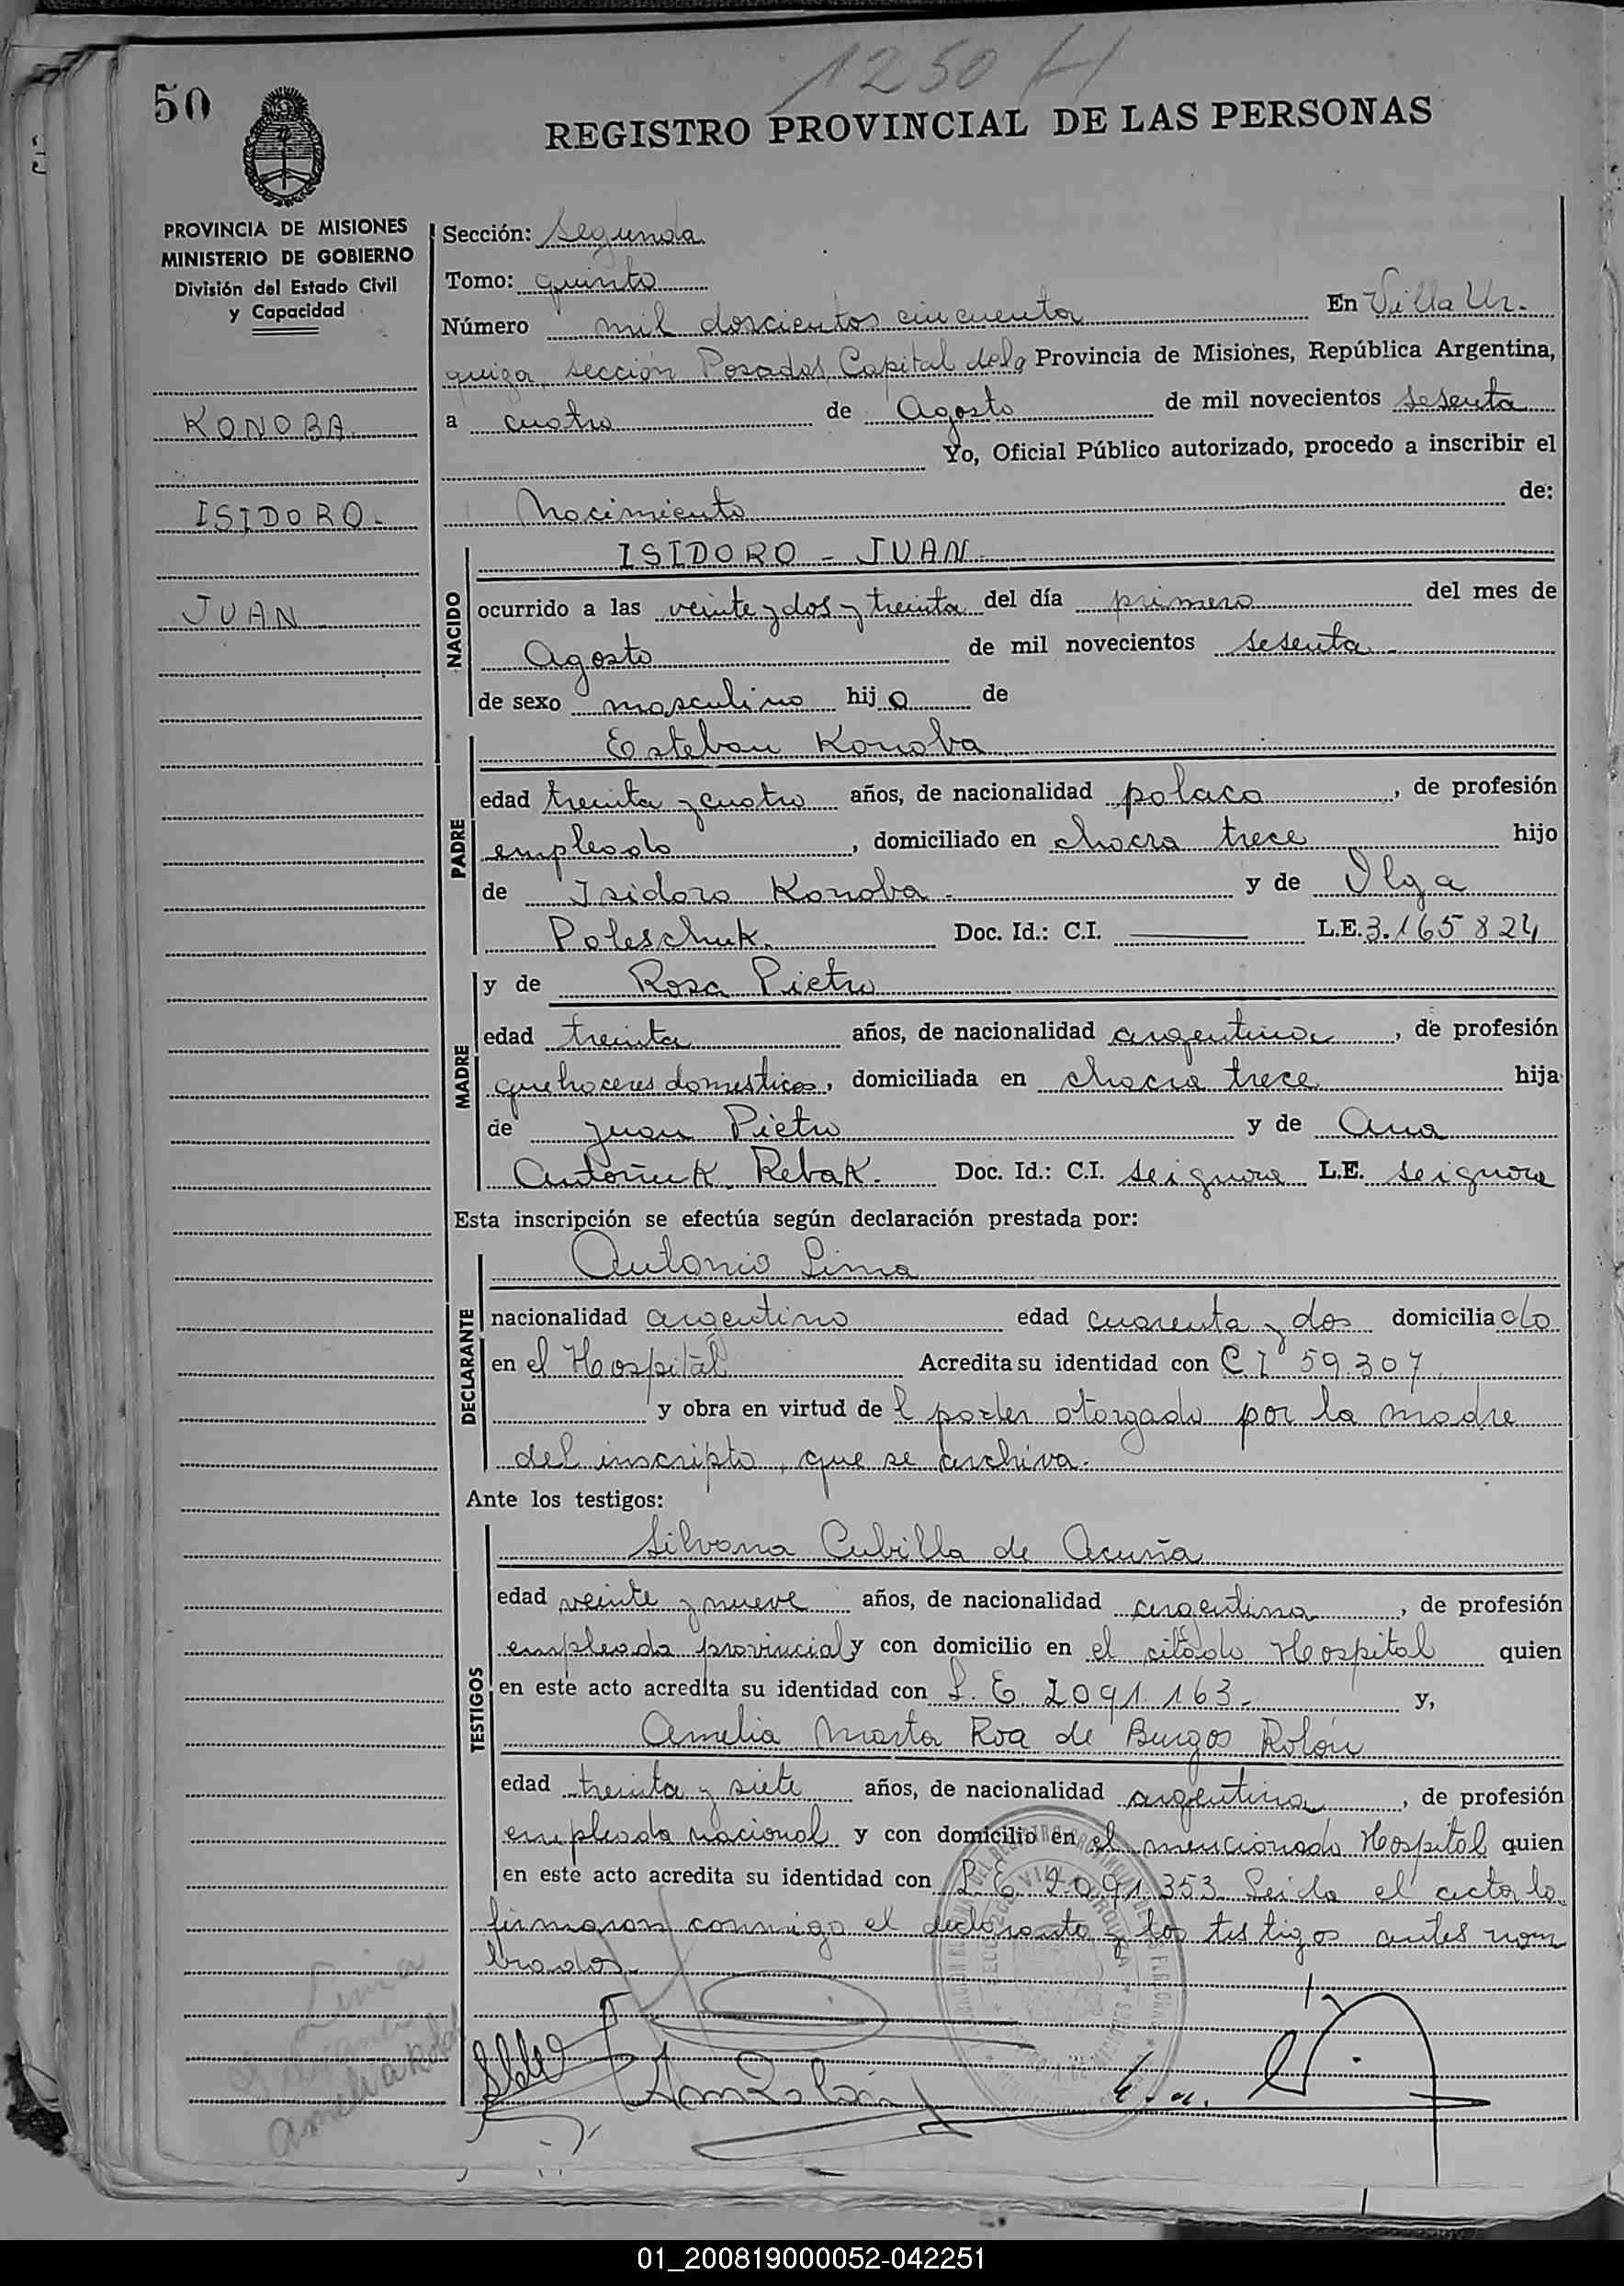 1250 H
50
REGISTRO PROVINCIAL DE LAS PERSONAS
PROVINCIA DE MISIONES
MINISTERIO DE GOBIERNO
División del Estado Civil
y Capacidad
KONOBA
ISIDORO.
JUAN
Sección: Segunda
Tomo: quinto
Número mil doscientos cincuenta En Villa Ur-
quiza, sección Posadas, Capital de la Provincia de Misiones, República Argentina,
a cuatro de Agosto de mil novecientos sesenta
Yo, Oficial Público autorizado, procedo a inscribir el
Nacimiento de:
NACIDO
ISIDORO - JUAN
ocurrido a las veinte y dos y treinta del día primero del mes de
Agosto de mil novecientos sesenta
de sexo masculino hijo de
PADRE
Esteban Konoba
edad treinta y cuatro años, de nacionalidad polaca, de profesión
empleado, domiciliado en chacra trece hijo
de Isidoro Konoba y de Olga
Poleschuk. Doc. Id.: C.I. L.E. 3.165.824
MADRE
y de Rosa Pietro
edad treinta años, de nacionalidad argentina, de profesión
quehaceres domesticos, domiciliada en chacra trece hija
de Juan Pietro y de Ana
Antoñuk Rebak. Doc. Id.: C.I. se ignora L.E. se ignora
Esta inscripción se efectúa según declaración prestada por:
DECLARANTE
Antonio Lima
nacionalidad argentino edad cuarenta y dos domiciliado
en el Hospital Acredita su identidad con C I 59.307
y obra en virtud del poder otorgado por la madre
del inscripto, que se archiva.
Ante los testigos:
TESTIGOS
Silvana Cubilla de Acuña
edad veinte y nueve años, de nacionalidad argentina, de profesión
empleada provincial y con domicilio en el citado Hospital quien
en este acto acredita su identidad con L. E 2091163- y,
Amelia Marta Roa de Burgos Rolón
edad treinta y siete años, de nacionalidad argentina, de profesión
empleada nacional y con domicilio en el mencionado Hospital quien
en este acto acredita su identidad con L.E. 2.091.353. Leida el acta lo
firmaron conmigo el declarante y los testigos antes nom
brados.
Lima
Amelia Rolon
01_200819000052-042251